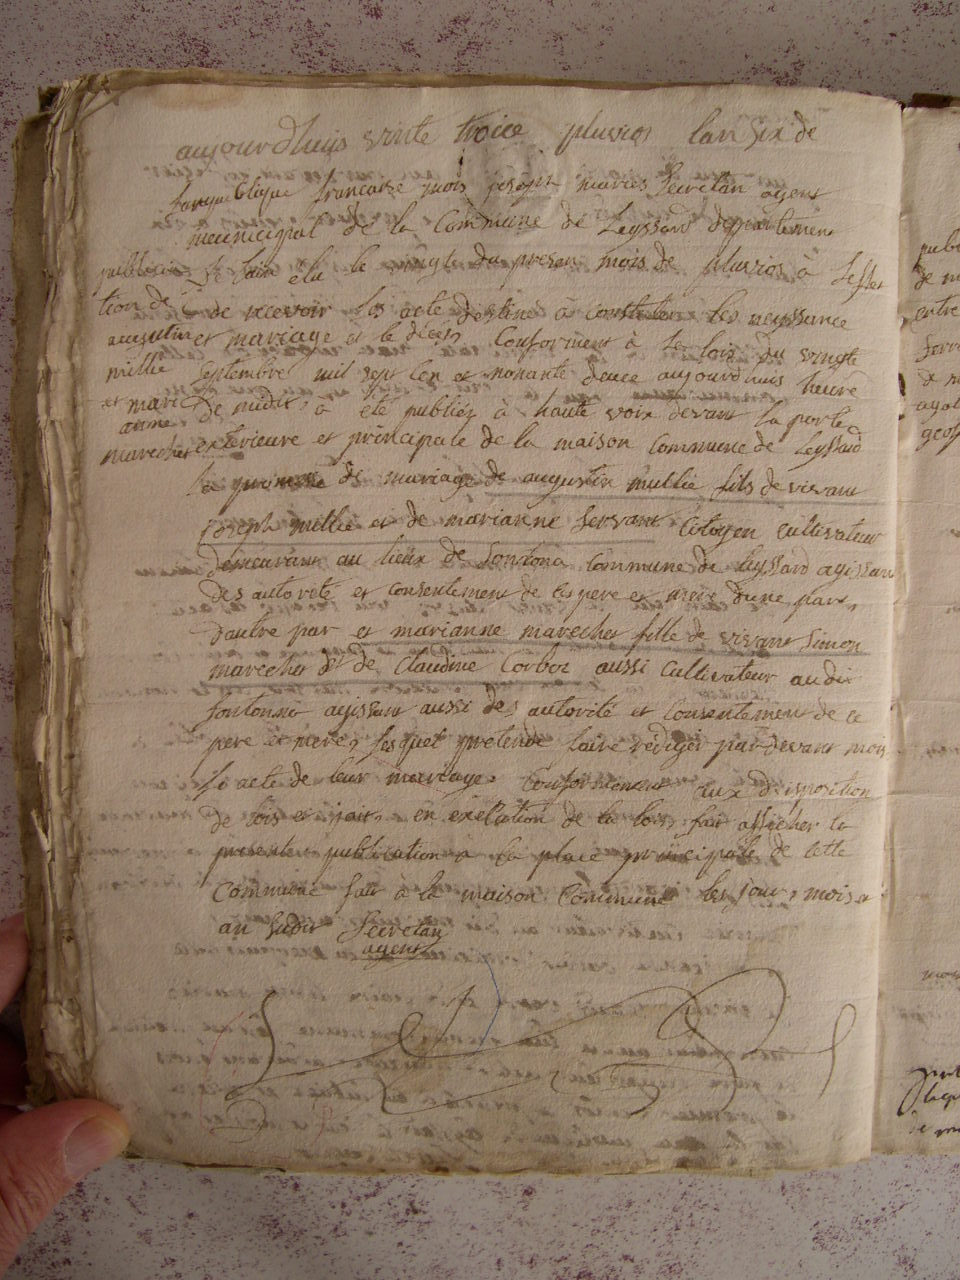 aujourdhuis vinte troice pluvios lan six de
larepublique francaise mois joseph maries Secretan agent
municiqal de la Commune de Leyssard departement
de lain élu le vingt du presen mois de pluvios à leffet
de recevoir los acte destine à constater les neyssance
et mariage et le décès Conforment à la lois du vingte
Septembre mil sept cen et nonante deuce aujourdhuis heure
De midit, à été publiéz à haute voix devant la porte
extérieure et principale de la maison Commune de Leyssard
la promese de mariage de augustin millie fils de vivant
joseph millie et de marianne Servant Citoyen cultivateur
Demeurant au lieux de Sontona Commune de leyssard agissan
Des autorité et consentement de ces pere et mere dune part,
Dautre par et marianne marechet fille de vivant Simon
marechet et de Claudine Corboz aussi Cultivateur audit
Sontonna agissant aussi des autorité et Consentement de ce
pere et mere, lesquel pretende faire rédiger pardevant mois
lo acte de leur mariage. Conformement aux disposition
de lois et jait, en exécution de la lois fait afficher la
presente publication a la place principale de cette
Commune fait à la maison Commune les jour, mois et
an sudit Secretan
agent
publica
tion de
augustin
millie
et mari
anne
marechet